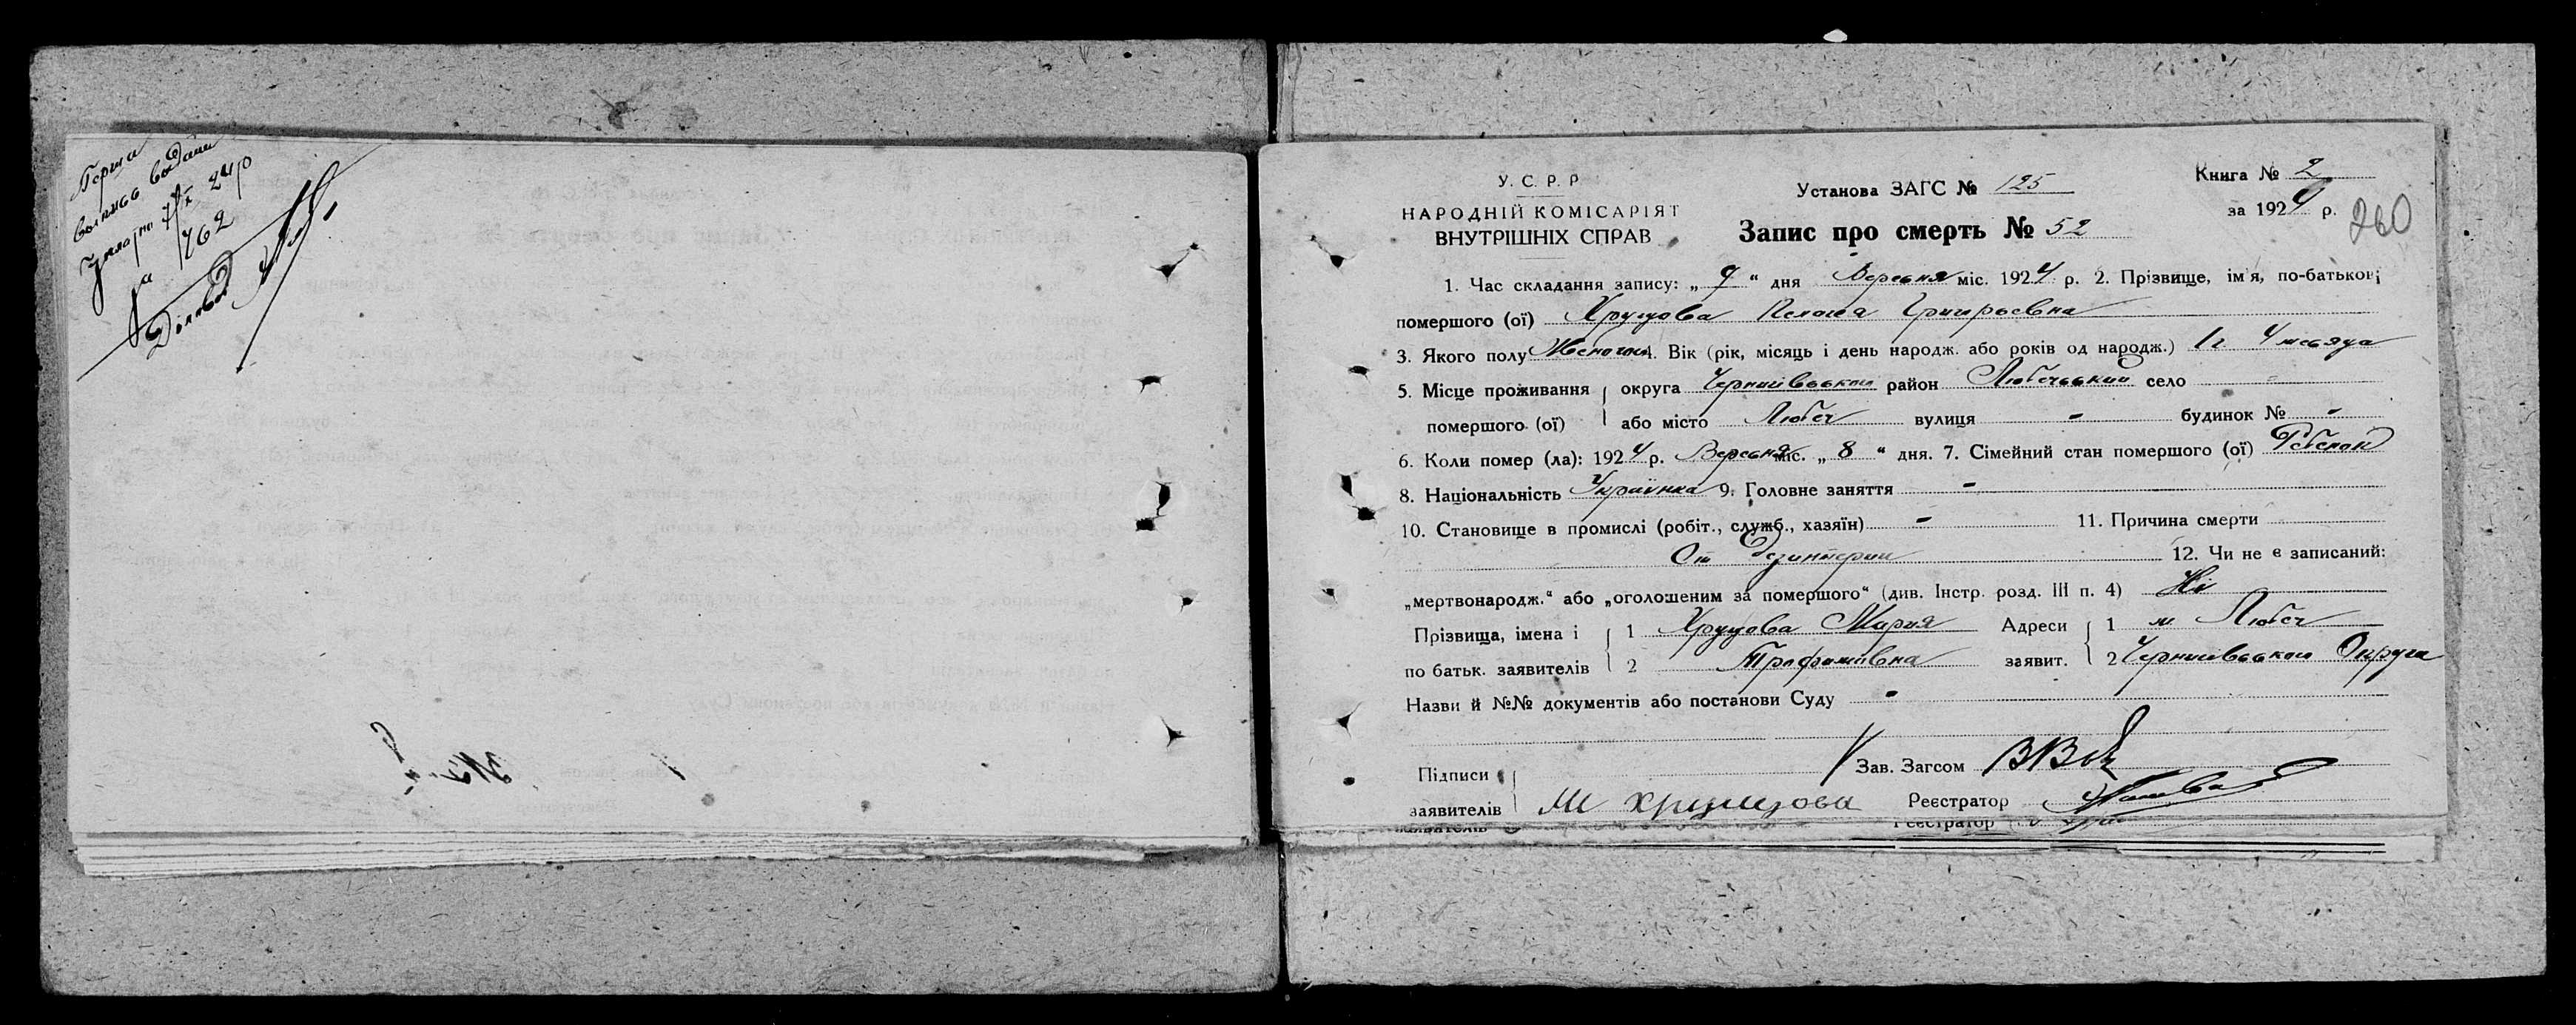 Перша
выпись выдана
1762
У. С. Р. Р
НАРОДНІЙ КОМІСАРІЯТ
ВНУТРІШНІХ СПРАВ
Установа ЗАГС № 125
Запис про смерть № 52
Книга № 2
за 1924 р.
260
1. Час складання запису: „ 9 “ дня Вересня міс. 1924 р. 2. Прізвище, ім'я, по-батькові
помершого (ої) Хрущова Григорьевна
3. Якого полу Женочои 4. Вік (рік, місяць і день народж. або років од народж.) 1 г. 4 месяца
5. Місце проживання округа Чернигівськои район Любечський село -
помершого (ої) або місто Любеч вулиця - будинок № -
6. Коли помер (ла): 1924 р. Вересня міс. „ 8 “ дня. 7. Сімейний стан помершого (ої) Ребенок
8. Національність Украинка 9. Головне заняття -
10. Становище в промислі (робіт., служб., хазяїн) - 11. Причина смерти
От дезинтерии 12. Чи не є записаний:
„мертвонародж.“ або „оголошеним за помершого“ (див. Інстр. розд. III п. 4) Ні
Прізвища, імена і 1 Хрущова Мария Адреси 1 м Любеч
по батьк. заявителів 2 Трофимівна заявит. 2 Чернигівськои Округа
Назви й №№ документів або постанови Суду -
Підписи Зав. Загсом
заявителів М Хрущова Реєстратор
заявителів Реєстратор